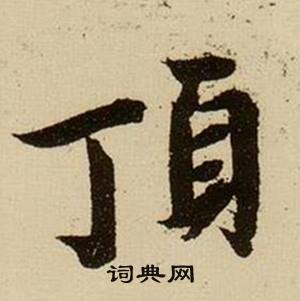 頂
词典网